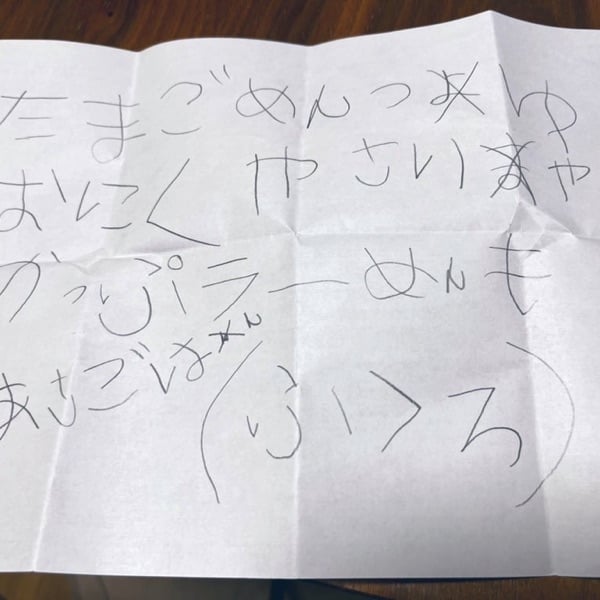 たまごめんつゆ
おにく やさいや
かっぷラーめんも
あさごはん
(ふくろ)